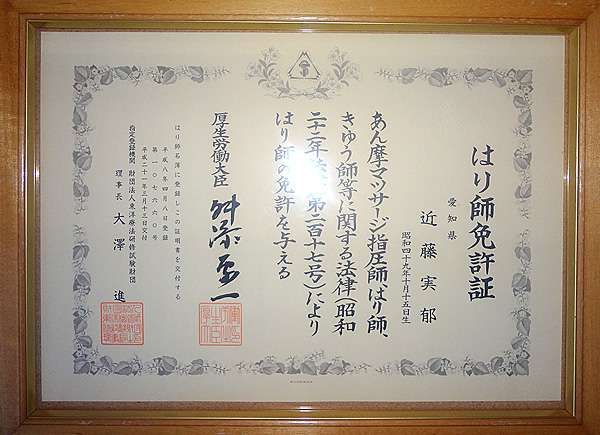 はり師免許証
愛知県
近藤実郁
昭和四十九年十月十五日生
あん摩マツサージ指圧師、はり師、
きゆう師等に関する法律(昭和
二十二年法律第二百十七号)により
はり師の免許を与える
厚生労働大臣
舛添要一
はり師名簿に登録しこの証明書を交付する
平成八年四月八日登録
第一〇七六六〇号
平成二十一年三月十三日交付
指定登録機関 財団法人東洋療法研修試験財団
理事長 大澤 進